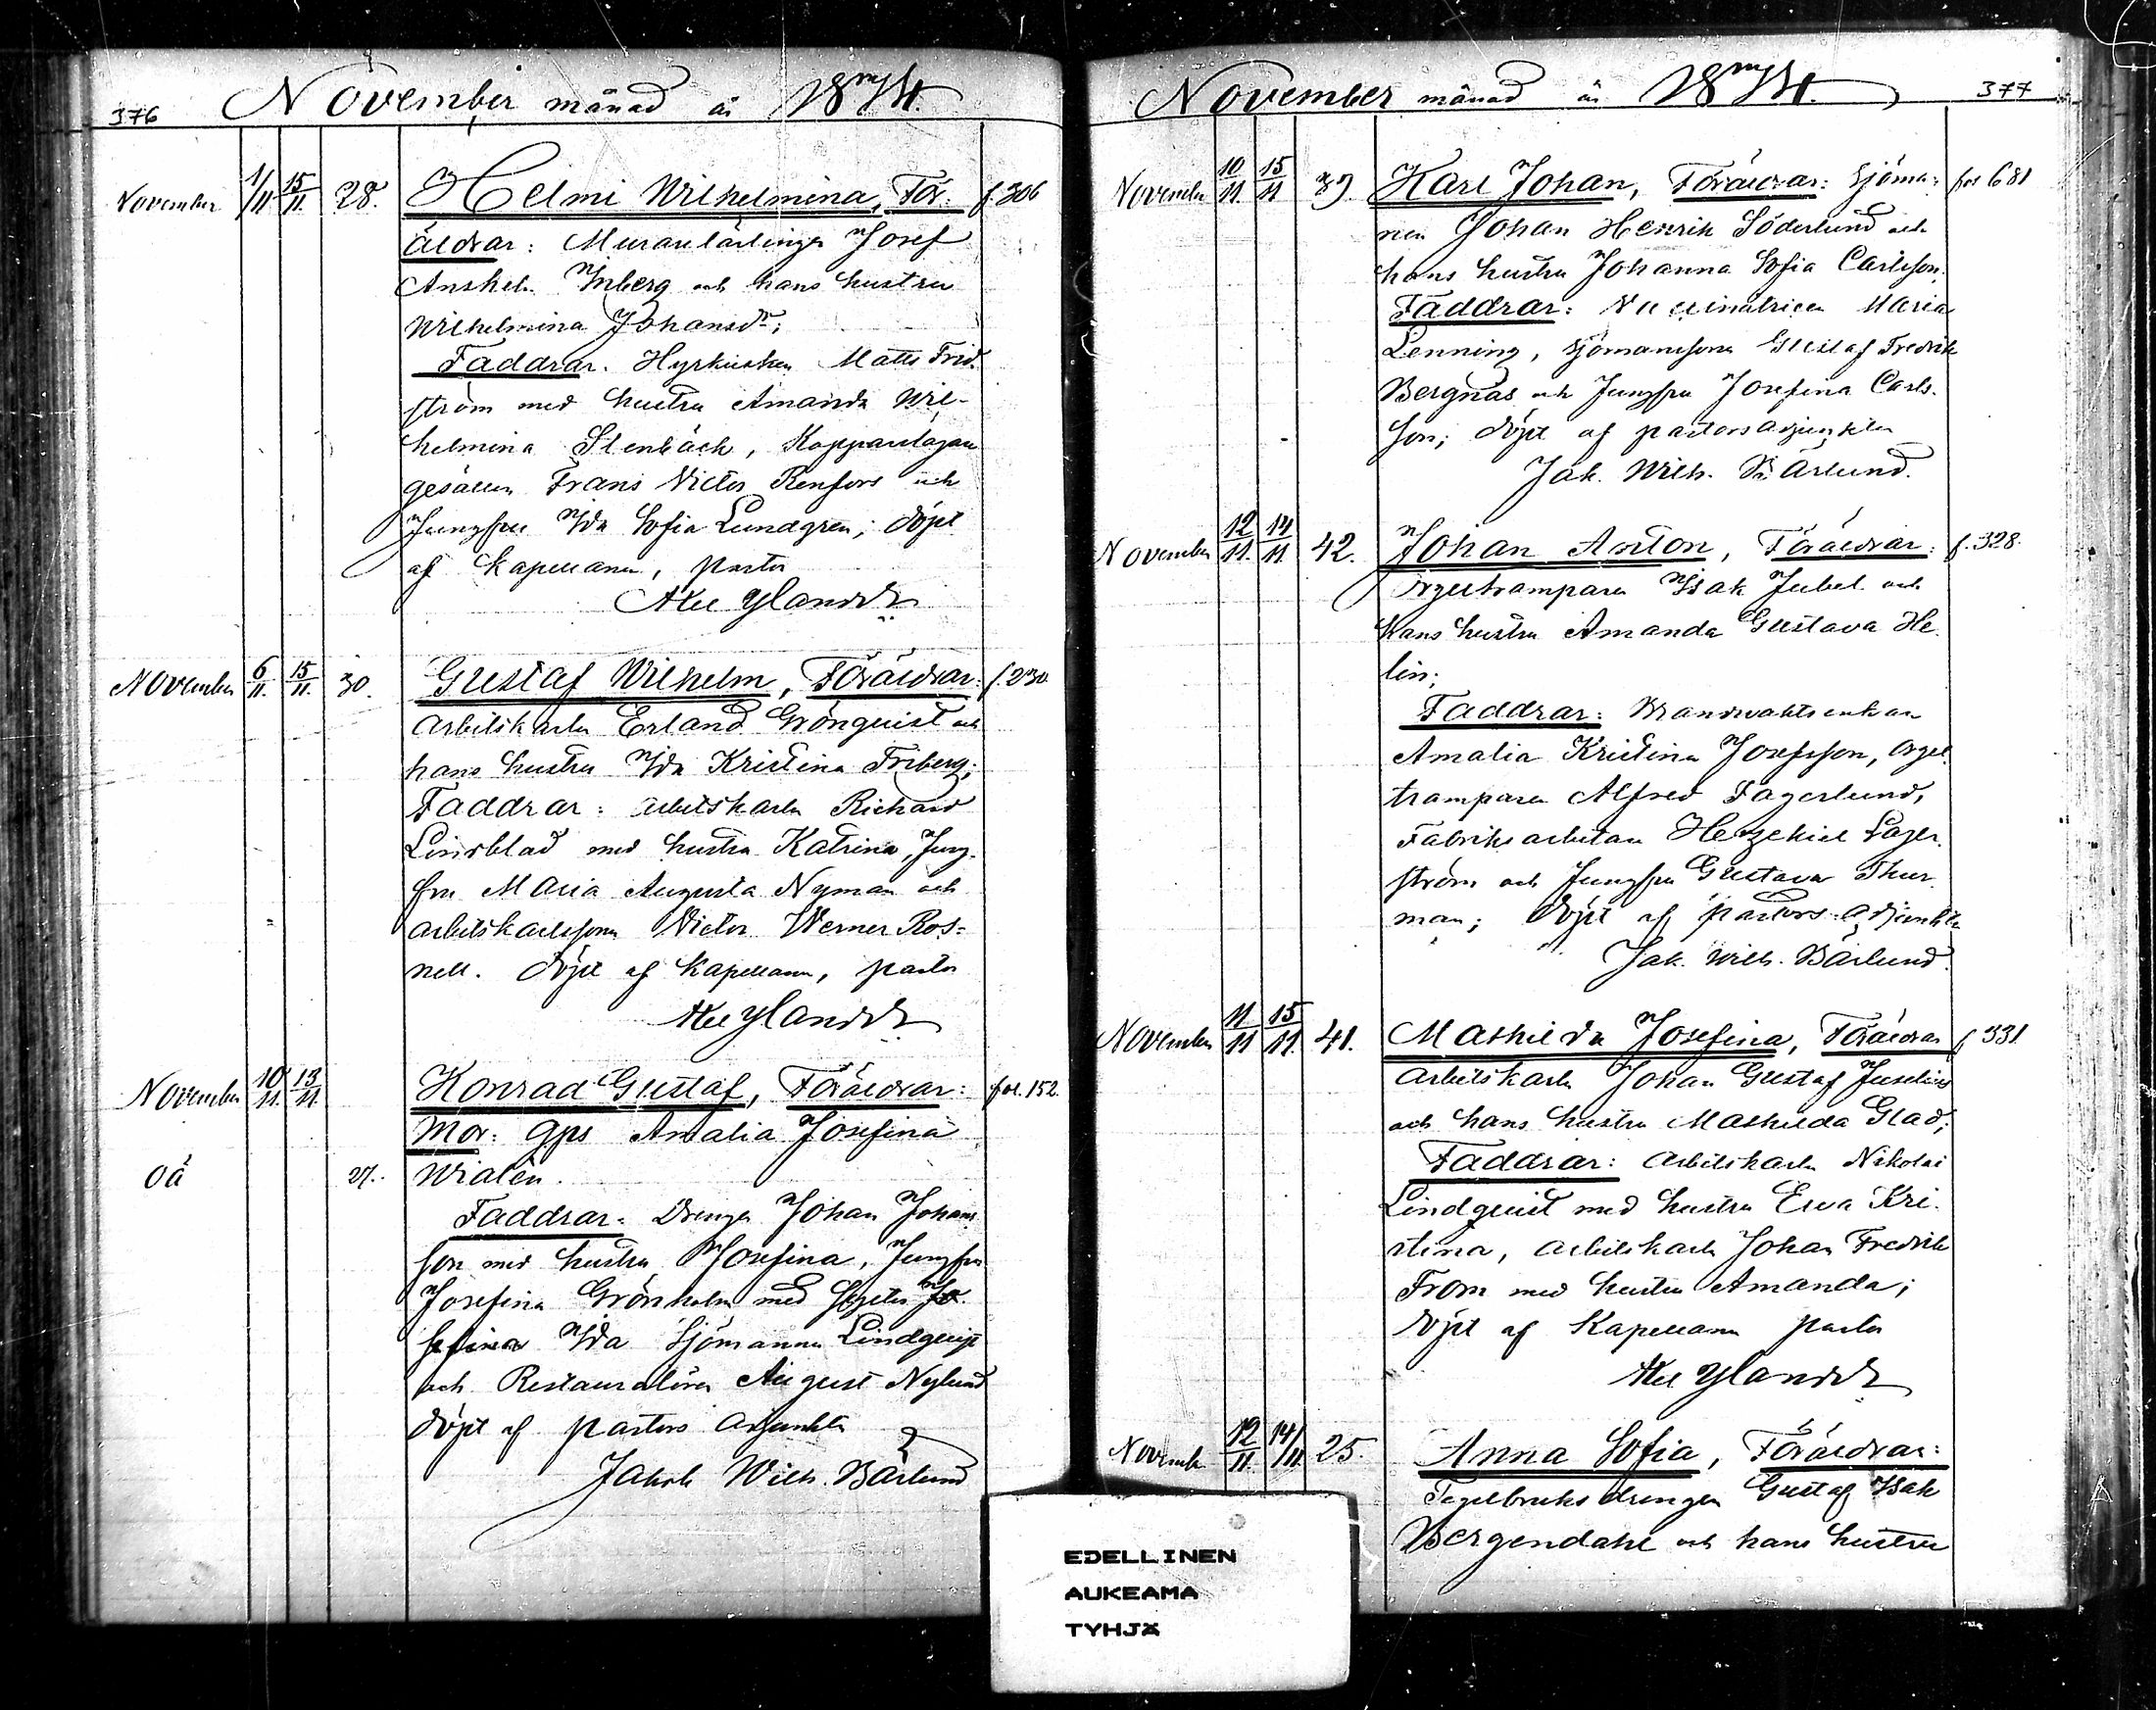 376 November månad år 1874.
November 1/11 15/11. 28. Helmi Wilhelmina, För- f. 306
äldrar: Murarelärlingen Josef
Anshelm Inberg och hans hustru
Wilhelmina Johansdr;
Faddrar. Hyrkusken Matts Frid-
ström med hustru Amanda Wil-
helmina Stenbäck, Kopparslagare
gesällen Frans Victor Renfors och
Jungfru Ida Sofia Lundgren; döpt
af Kapellanen, pastor
Ylander
November 6/11. 15/11. 30. Gustaf Wilhelm, Föräldrar: f. 230
arbetskarlen Erland Grönquist och
hans hustru Ida Kristina Friberg;
Faddrar: arbetskarlen Richard
Lindblad med hustru Katrina, Jung-
fru Maria Augusta Nyman och
arbetskarlssonen Victor Werner Ros=
nell. döpt af Kapellanen, pastor
Ylander
November 10/11. 13/11. Konrad Gustaf, Föräldrar: fol. 152.
Mor: Gps Amalia Josefina
Oä 27. Wialén.
Faddrar: Drengen Johan Johans
son med hustru Josefina, Jungfru
Josefina Grönholm med
Ida Sjömannen Lindquist
och Restauratören August Nylund
döpt af pastors adjunkten
Jakob Wilh. Bärlund
November månad år 1874. 377
November 10/11. 15/11 39. Karl Johan, Föräldrar: Sjöma- fol 681
nen Johan Henrik Söderlund och
hans hustru Johanna Sofia Carlsson.
Faddrar: Vaccinatricen Maria
Lenning, sjömanssonen Gustaf Fredrik
Bergnäs och Jungfru Josefina Carls-
son; döpt af pastorsadjunkten
Jak. Wilh. Bärlund.
November 12/11. 14/11. 42. Johan Anton, Föräldrar: f. 328.
Orgeltramparen Isak Jubel och
hans hustru Amanda Gustava He-
lin;
Faddrar: Brandvaktsenkan
Amalia Kristina Josefsson, Orgel-
tramparen Alfred Fagerlund,
Fabriksarbetaren Hezekiel Lager-
ström och Jungfru Gustava Thur-
man; döpt af pastors-adjunkten
Jak. Wilh. Bärlund.
November 11/11 15/11. 41. Mathilda Josefina, Föräldrar f 331
arbetskarlen Johan Gustaf Juselius
och hans hustru Mathilda Glad;
Faddrar: arbetskarlen Nikolai
Lindquist med hustru Ewa Kri-
stina, arbetskarlen Johan Fredrik
From med hustru Amanda;
döpt af Kapellanen pastor
Ylander
November 12/11. 14/11 25. Anna Sofia, Föräldrar:
Tegelbruksdrengen Gustaf Isak
Bergendahl och hans hustru
EDELLINEN
AUKEAMA
TYHJÄ